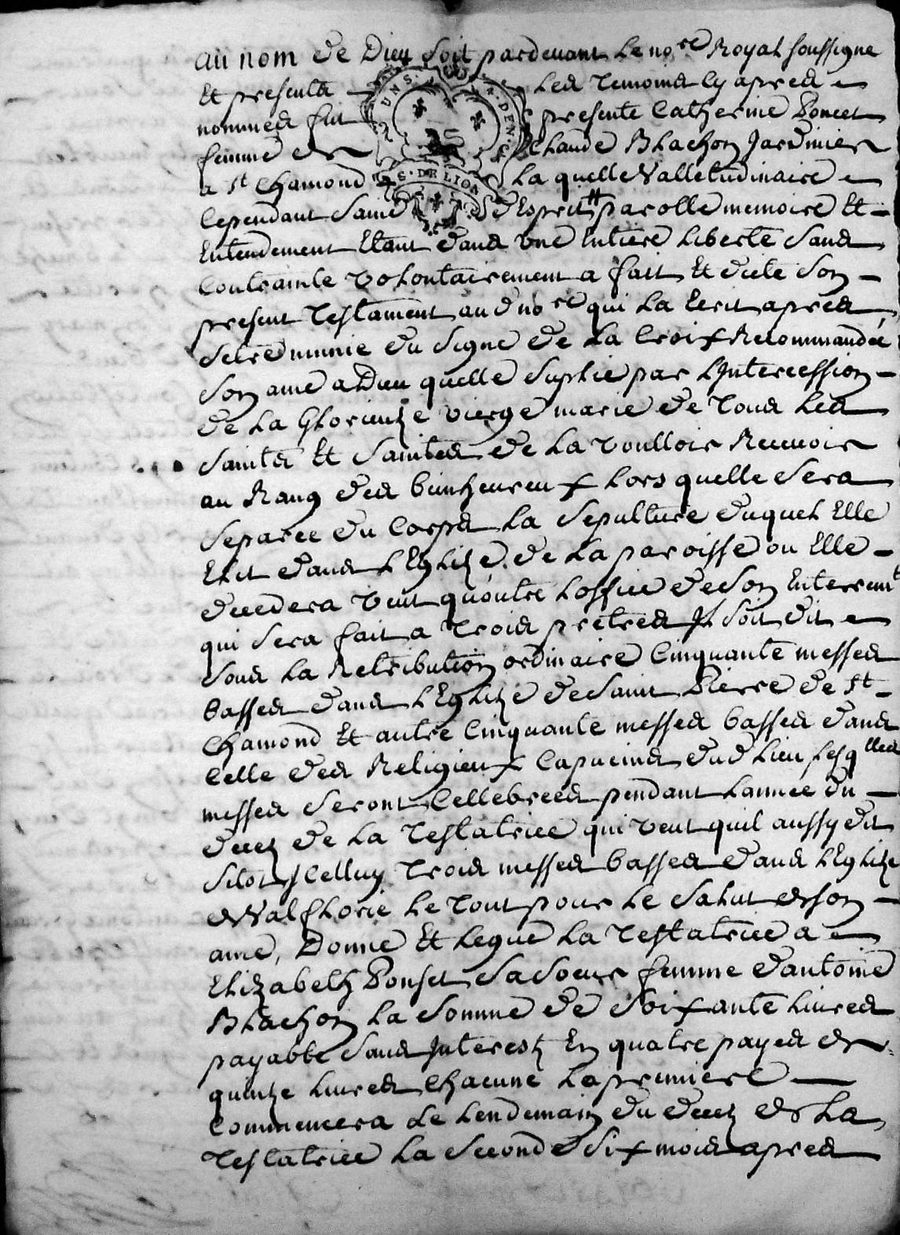 au nom de Dieu soit pardevant le no.re Royal soussigne
Et presents les temoins cy apres
nommes fut presente Catherine Poncet
femme de Claude Blachon Jardinier
a st Chamond la quelle Valletudinaire
Cependant Saine d'Esprit parolle memoire Et
Entendement Etant dans une Entiere liberté sans
Contrainte volontairement a fait Et dicté son
present Testament aud no.re qui la Ecrit apres
setre munie du signe de la croix Recommandée
son ame a Dieu quelle suplie par l'Intercession
de la Glorieuze vierge marie de tous les
saints Et saintes de la voulloir Recevoir
au Rang des bienheureux lors quelle sera
separée du corps la sepulture duquel Elle
Elit dans l'Eglize de la paroisse ou Elle
decedera veut qu'outre l'office de son Enterremt
qui sera fait a trois prêtres Il soit dit
sous la Retribution ordinaire Cinquante messes
basses dans l'Eglize de saint Pierre de st
Chamond Et autre Cinquante messes basses dans
Celle des Religieux Capucins dud lieu lesqlles
messes seront Cellebrées pendant lannée du
decez de la Testatrice qui veut quil aussy dit
sitot Icelluy trois messes basses dans l'Eglize
de Valflorie le tout pour le salut de son
ame, Donne Et legue la Testatrice a
Elizabeth Ponset sa soeur femme d'antoine
Blachon la somme de soixante livres
payable sans Interestz En quatre payes de
quinze livres chacune la premiere
Commencera le lendemain du decez de la
Testatrice la seconde six mois apres
UNS
DEN
S. DE LION